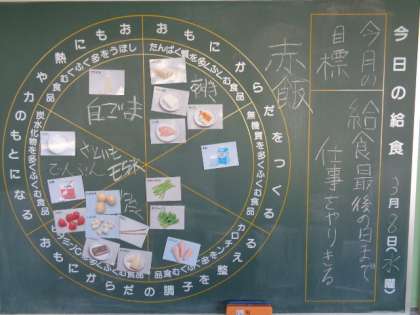 今日の給食
3月8日(水曜)
今月の目標
給食最後の日まで
仕事をやりきる
赤飯
おもにからだをつくる
たんぱく質を多くふくむ食品
無機質を多くふくむ食品
おもにからだの調子を整える
カロチンを多くふくむ食品
ビタミンCを多くふくむ食品
おもに熱や力のもとになる
炭水化物を多くふくむ食品
しぼうを多くふくむ食品
白ごま
さといも
でんぷん